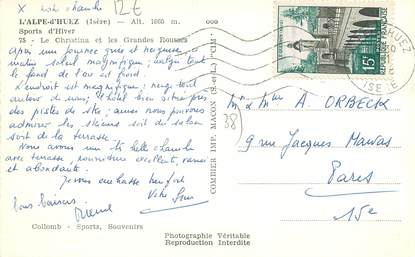 X notre chambre 12€
L'ALPE-d'HUEZ (Isère) — Alt. 1860 m.
Sports d'Hiver
75 - Le Christina et les Grandes Rousses
Après une journée grise et neigeuse, ce
matin soleil magnifique; malgré tout
le fond de l'air est froid.
L'endroit est magnifique; neige tout
autour de nous; hôtel bien situé près
des pistes de ski; aussi nous pouvons
admirer les skieurs soit du salon
soit de la terrasse.
Nous avons une très belle chambre
avec terrasse, nourriture excellente, variée
et abondante.
Je vous embrasse bien fort
Votre
Bons baisers
Collomb - Sports, Souvenirs
COMBIER IMP. MACON (S.-et-L.) "CIM"
15F
HUEZ
ISÈRE
38
Mr et Mme A. ORBECK
9 rue Jacques Mawas
Paris
15e
Photographie Véritable
Reproduction Interdite